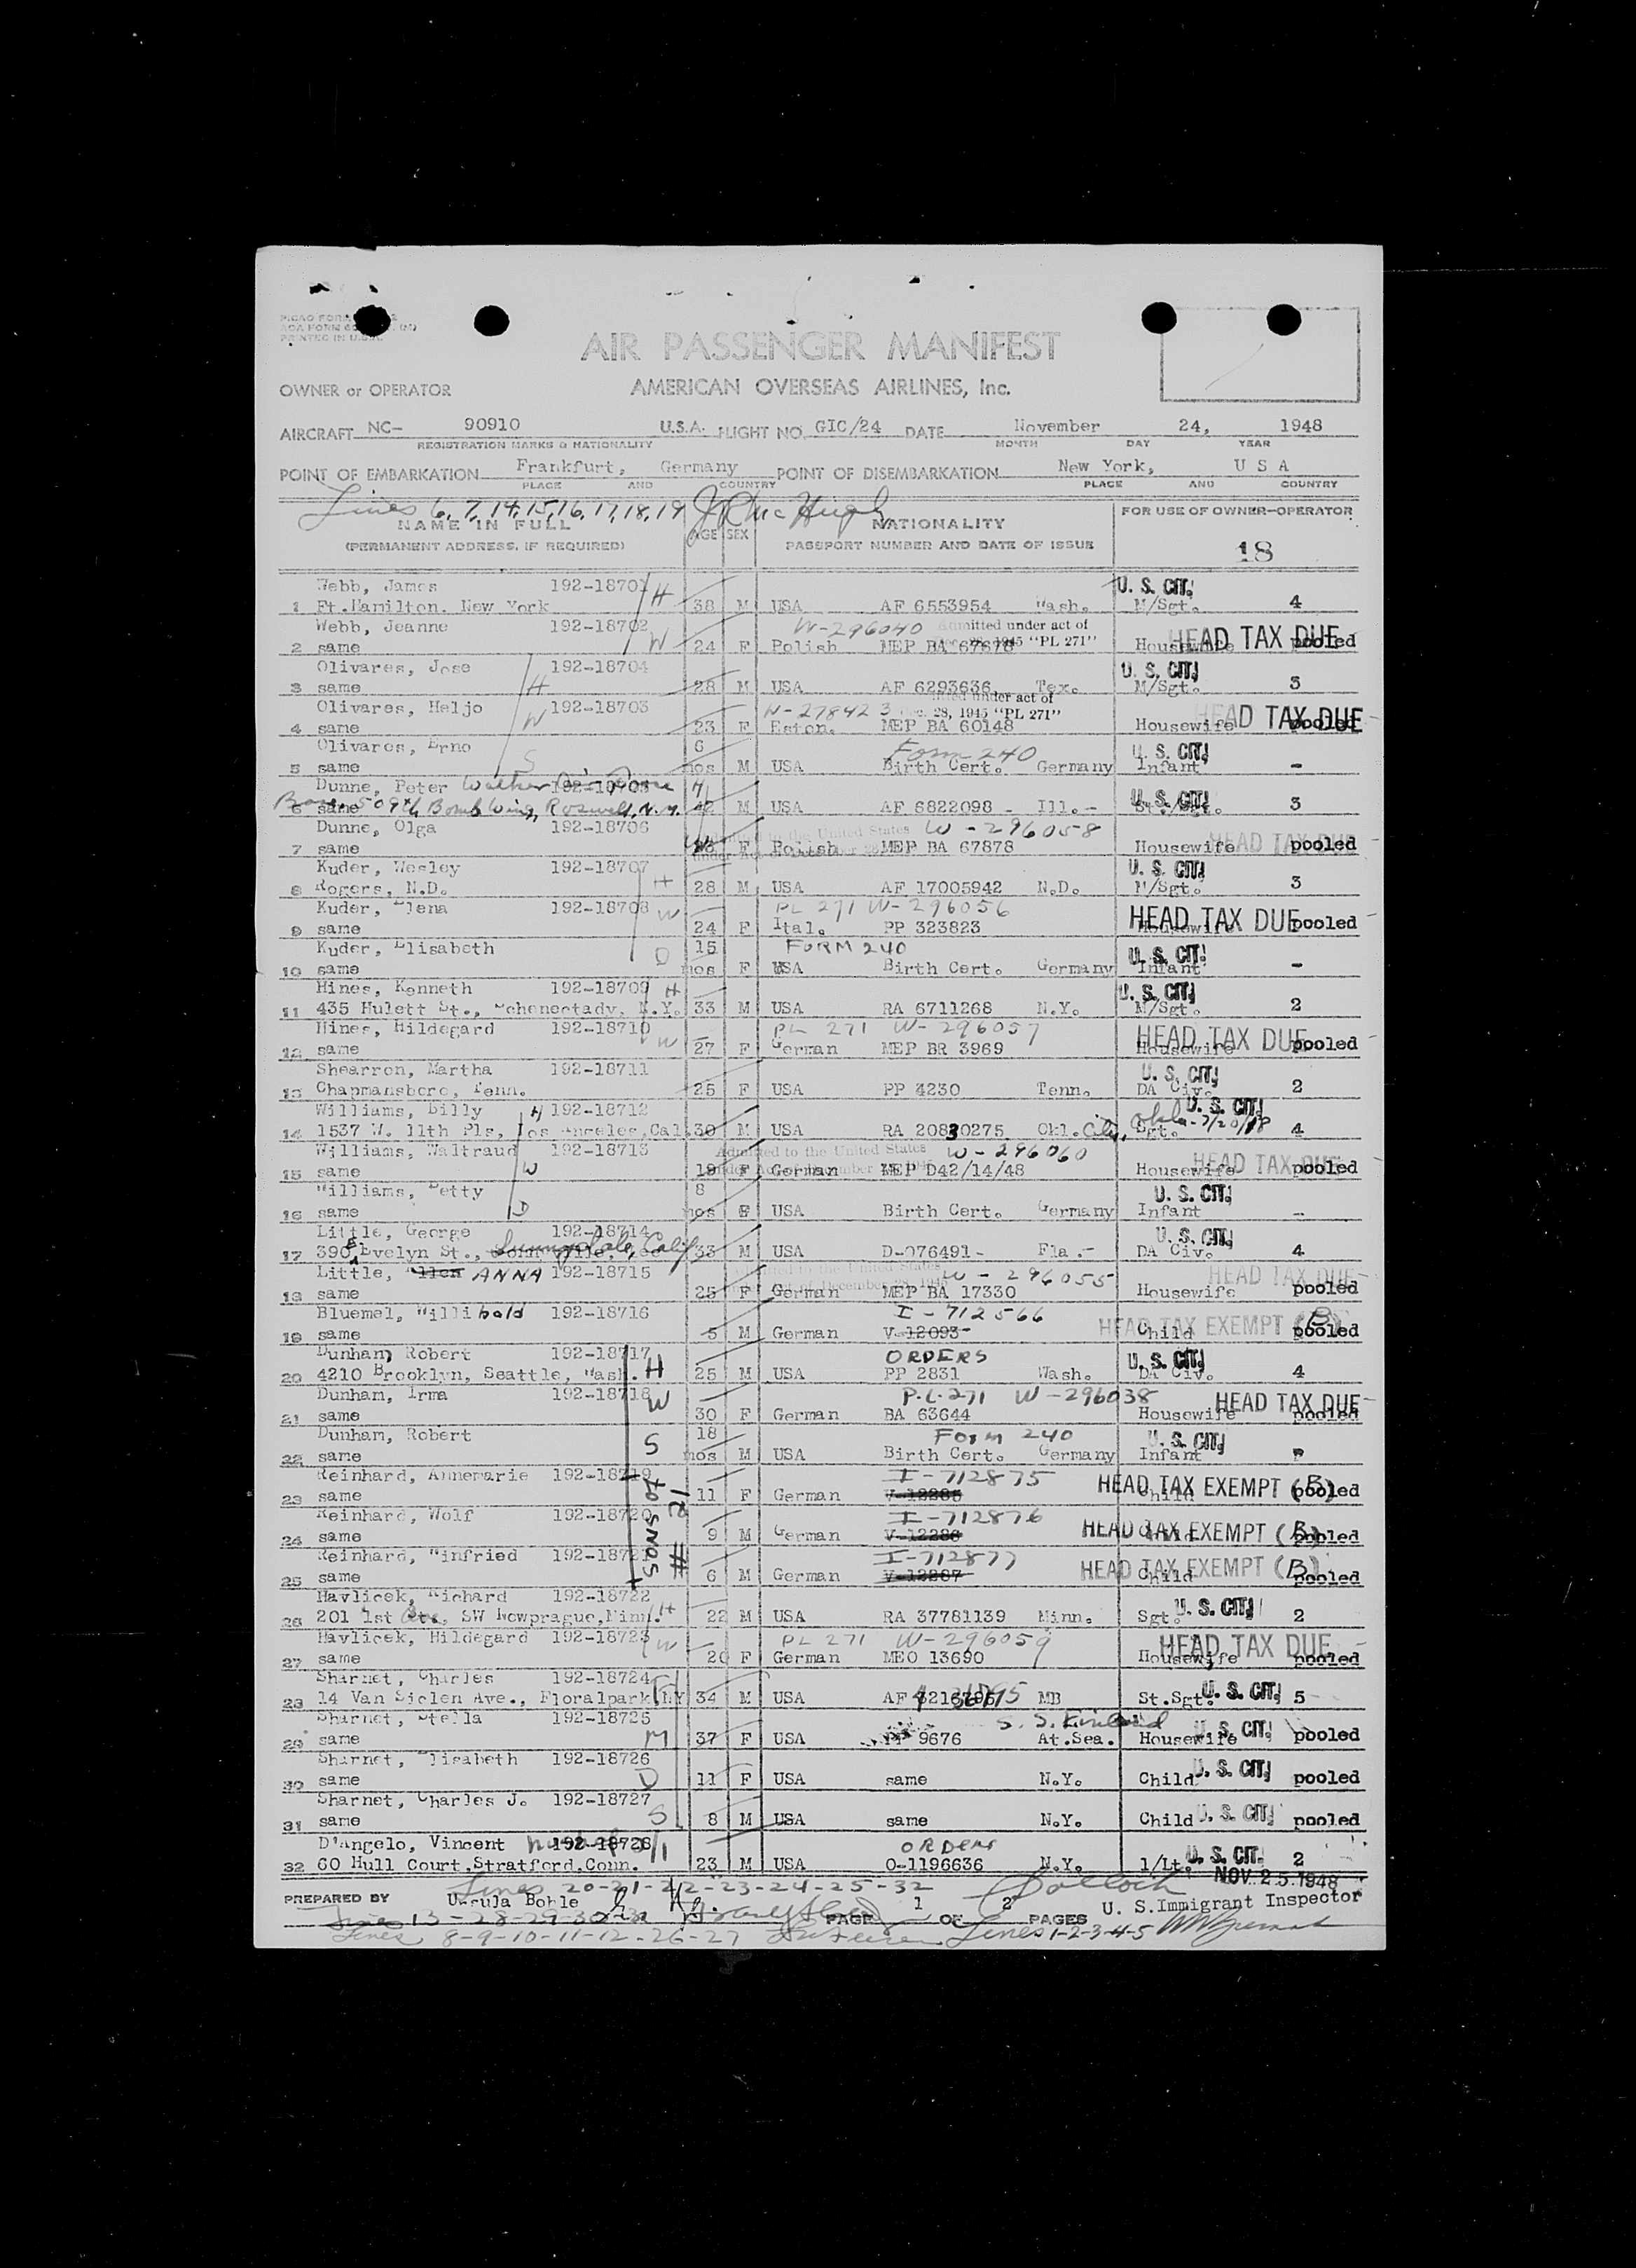 PRINTED IN U.S.A.
AIR PASSENGER MANIFEST
OWNER or OPERATOR AMERICAN OVERSEAS AIRLINES, Inc.
AIRCRAFT NC- 90910 U.S.A. FLIGHT NO. GIC/24 DATE November 24, 1948
REGISTRATION MARKS & NATIONALITY MONTH DAY YEAR
POINT OF EMBARKATION Frankfurt, Germany POINT OF DISEMBARKATION New York, U S A
PLACE AND COUNTRY PLACE AND COUNTRY
Lines 6,7,14,15,16,17,18,19
NAME IN FULL AGE SEX NATIONALITY FOR USE OF OWNER-OPERATOR
(PERMANENT ADDRESS, IF REQUIRED) PASSPORT NUMBER AND DATE OF ISSUE 18
Webb, James 192-18701 H U. S. CIT.
1 Ft.Hamilton. New York 38 M USA AF 6553954 Wash. M/Sgt. 4
Webb, Jeanne 192-18702 W W-296040 Admitted under act of
2 same 24 F Polish MEP BA 67678 1945 "PL 271" Housewife HEAD TAX DUE pooled
Olivares, Jose 192-18704 U. S. CIT.
3 same H 28 M USA AF 6293636 Tex. M/Sgt. 3
Olivares, Heljo 192-18703 W-278423 under act of Dec. 28, 1945 "PL 271"
4 same W 23 F Eston. MEP BA 60148 Housewife HEAD TAX DUE pooled
Olivares, Erno 6 Form 240 U. S. CIT.
5 same S mos M USA Birth Cert. Germany Infant -
Dunne, Peter Walter 192-18705 H
6 same 509th Bomb Wing, Roswell, N.M. 42 M USA AF 6822098 - Ill. - U. S. CIT. St./Sgt. 3
Dunne, Olga 192-18706 W Admitted to the United States W-296058
7 same F Polish MEP BA 67878 Housewife HEAD TAX DUE pooled
Kuder, Wesley 192-18707 U. S. CIT.
8 Rogers, N.D. H 28 M USA AF 17005942 N.D. M/Sgt. 3
Kuder, Elena 192-18708 W PL 271 W-296056
9 same 24 F Ital. PP 323823 Housewife HEAD TAX DUE pooled
Kuder, Elisabeth 15 FORM 240 U. S. CIT.
10 same D mos F USA Birth Cert. Germany Infant -
Hines, Kenneth 192-18709 H U. S. CIT.
11 435 Hulett St., Schenectady, N.Y. 33 M USA RA 6711268 N.Y. M/Sgt. 2
Hines, Hildegard 192-18710 W PL 271 W-296057
12 same 27 F German MEP BR 3969 Housewife HEAD TAX DUE pooled
Shearron, Martha 192-18711 U. S. CIT.
13 Chapmansboro, Tenn. 25 F USA PP 4230 Tenn. DA Civ. 2
Williams, Billy H 192-18712 U. S. CIT.
14 1537 W. 11th Pls, Los Angeles,Cal 30 M USA RA 20830275 Okl. City, Okla - 7/20/18 Sgt. 4
Williams, Waltraud 192-18713 Admitted to the United States W-296060
15 same W 19 F German MEP D42/14/48 Housewife HEAD TAX DUE pooled
Williams, Betty 8 U. S. CIT.
16 same D mos F USA Birth Cert. Germany Infant -
Little, George 192-18714 U. S. CIT.
17 390 E Evelyn St., Sunnydale, Calif 33 M USA D-076491- Fla.- DA Civ. 4
Little, Ellen ANNA 192-18715 to the United States W-296055
18 same 25 F German MEP BA 17330 Housewife HEAD TAX DUE pooled
Bluemel, Willibald 192-18716 I-712566
19 same 5 M German V-12093- Child HEAD TAX EXEMPT (B) pooled
Dunham, Robert 192-18717 H ORDERS U. S. CIT.
20 4210 Brooklyn, Seattle, Wash. 25 M USA PP 2831 Wash. DA Civ. 4
Dunham, Irma 192-18718 W P.L. 271 W-296038 HEAD TAX DUE
21 same 30 F German BA 63644 Housewife pooled
Dunham, Robert S 18 Form 240 U. S. CIT.
22 same mos M USA Birth Cert. Germany Infant -
Reinhard, Annemarie 192-18719 I-712875
23 same 11 F German V-12285 Child HEAD TAX EXEMPT (B) pooled
Reinhard, Wolf 192-18720 I-712876
24 same 9 M German V-12286 HEAD TAX EXEMPT (B) pooled
Reinhard, Winfried 192-1872 I-712877
25 same 6 M German V-12287 Child HEAD TAX EXEMPT (B) pooled
sons to # 21
Havlicek, Richard 192-18722
26 201 1st Ave, SW Newprague,Minn. H 22 M USA RA 37781139 Minn. Sgt. U. S. CIT. 2
Havlicek, Hildegard 192-18723 W PL 271 W-296059
27 same 20 F German MEO 13690 Housewife HEAD TAX DUE pooled
Sharnet, Charles 192-18724 F
28 14 Van Siclen Ave., Floralpark,NY 34 M USA AF MB St.Sgt. U. S. CIT. 5
Sharnet, Stella 192-18725 S. S. Finland
29 same M 37 F USA PP 9676 At.Sea. Housewife U. S. CIT. pooled
Sharnet, Elisabeth 192-18726
30 same D 11 F USA same N.Y. Child U. S. CIT. pooled
Sharnet, Charles J. 192-18727
31 same S 8 M USA same N.Y. Child U. S. CIT. pooled
D'Angelo, Vincent 192-18728 ORDERS
32 60 Hull Court,Stratford,Conn. 23 M USA O-1196636 N.Y. 1/Lt. U. S. CIT. 2
Lines 20-21-22-23-24-25-32 NOV 25 1948
PREPARED BY Ursula Bohle PAGE 1 OF 2 PAGES U. S. Immigrant Inspector
Lines 13-28-29-30-31
Lines 8-9-10-11-12-26-27 Lines 1-2-3-4-5